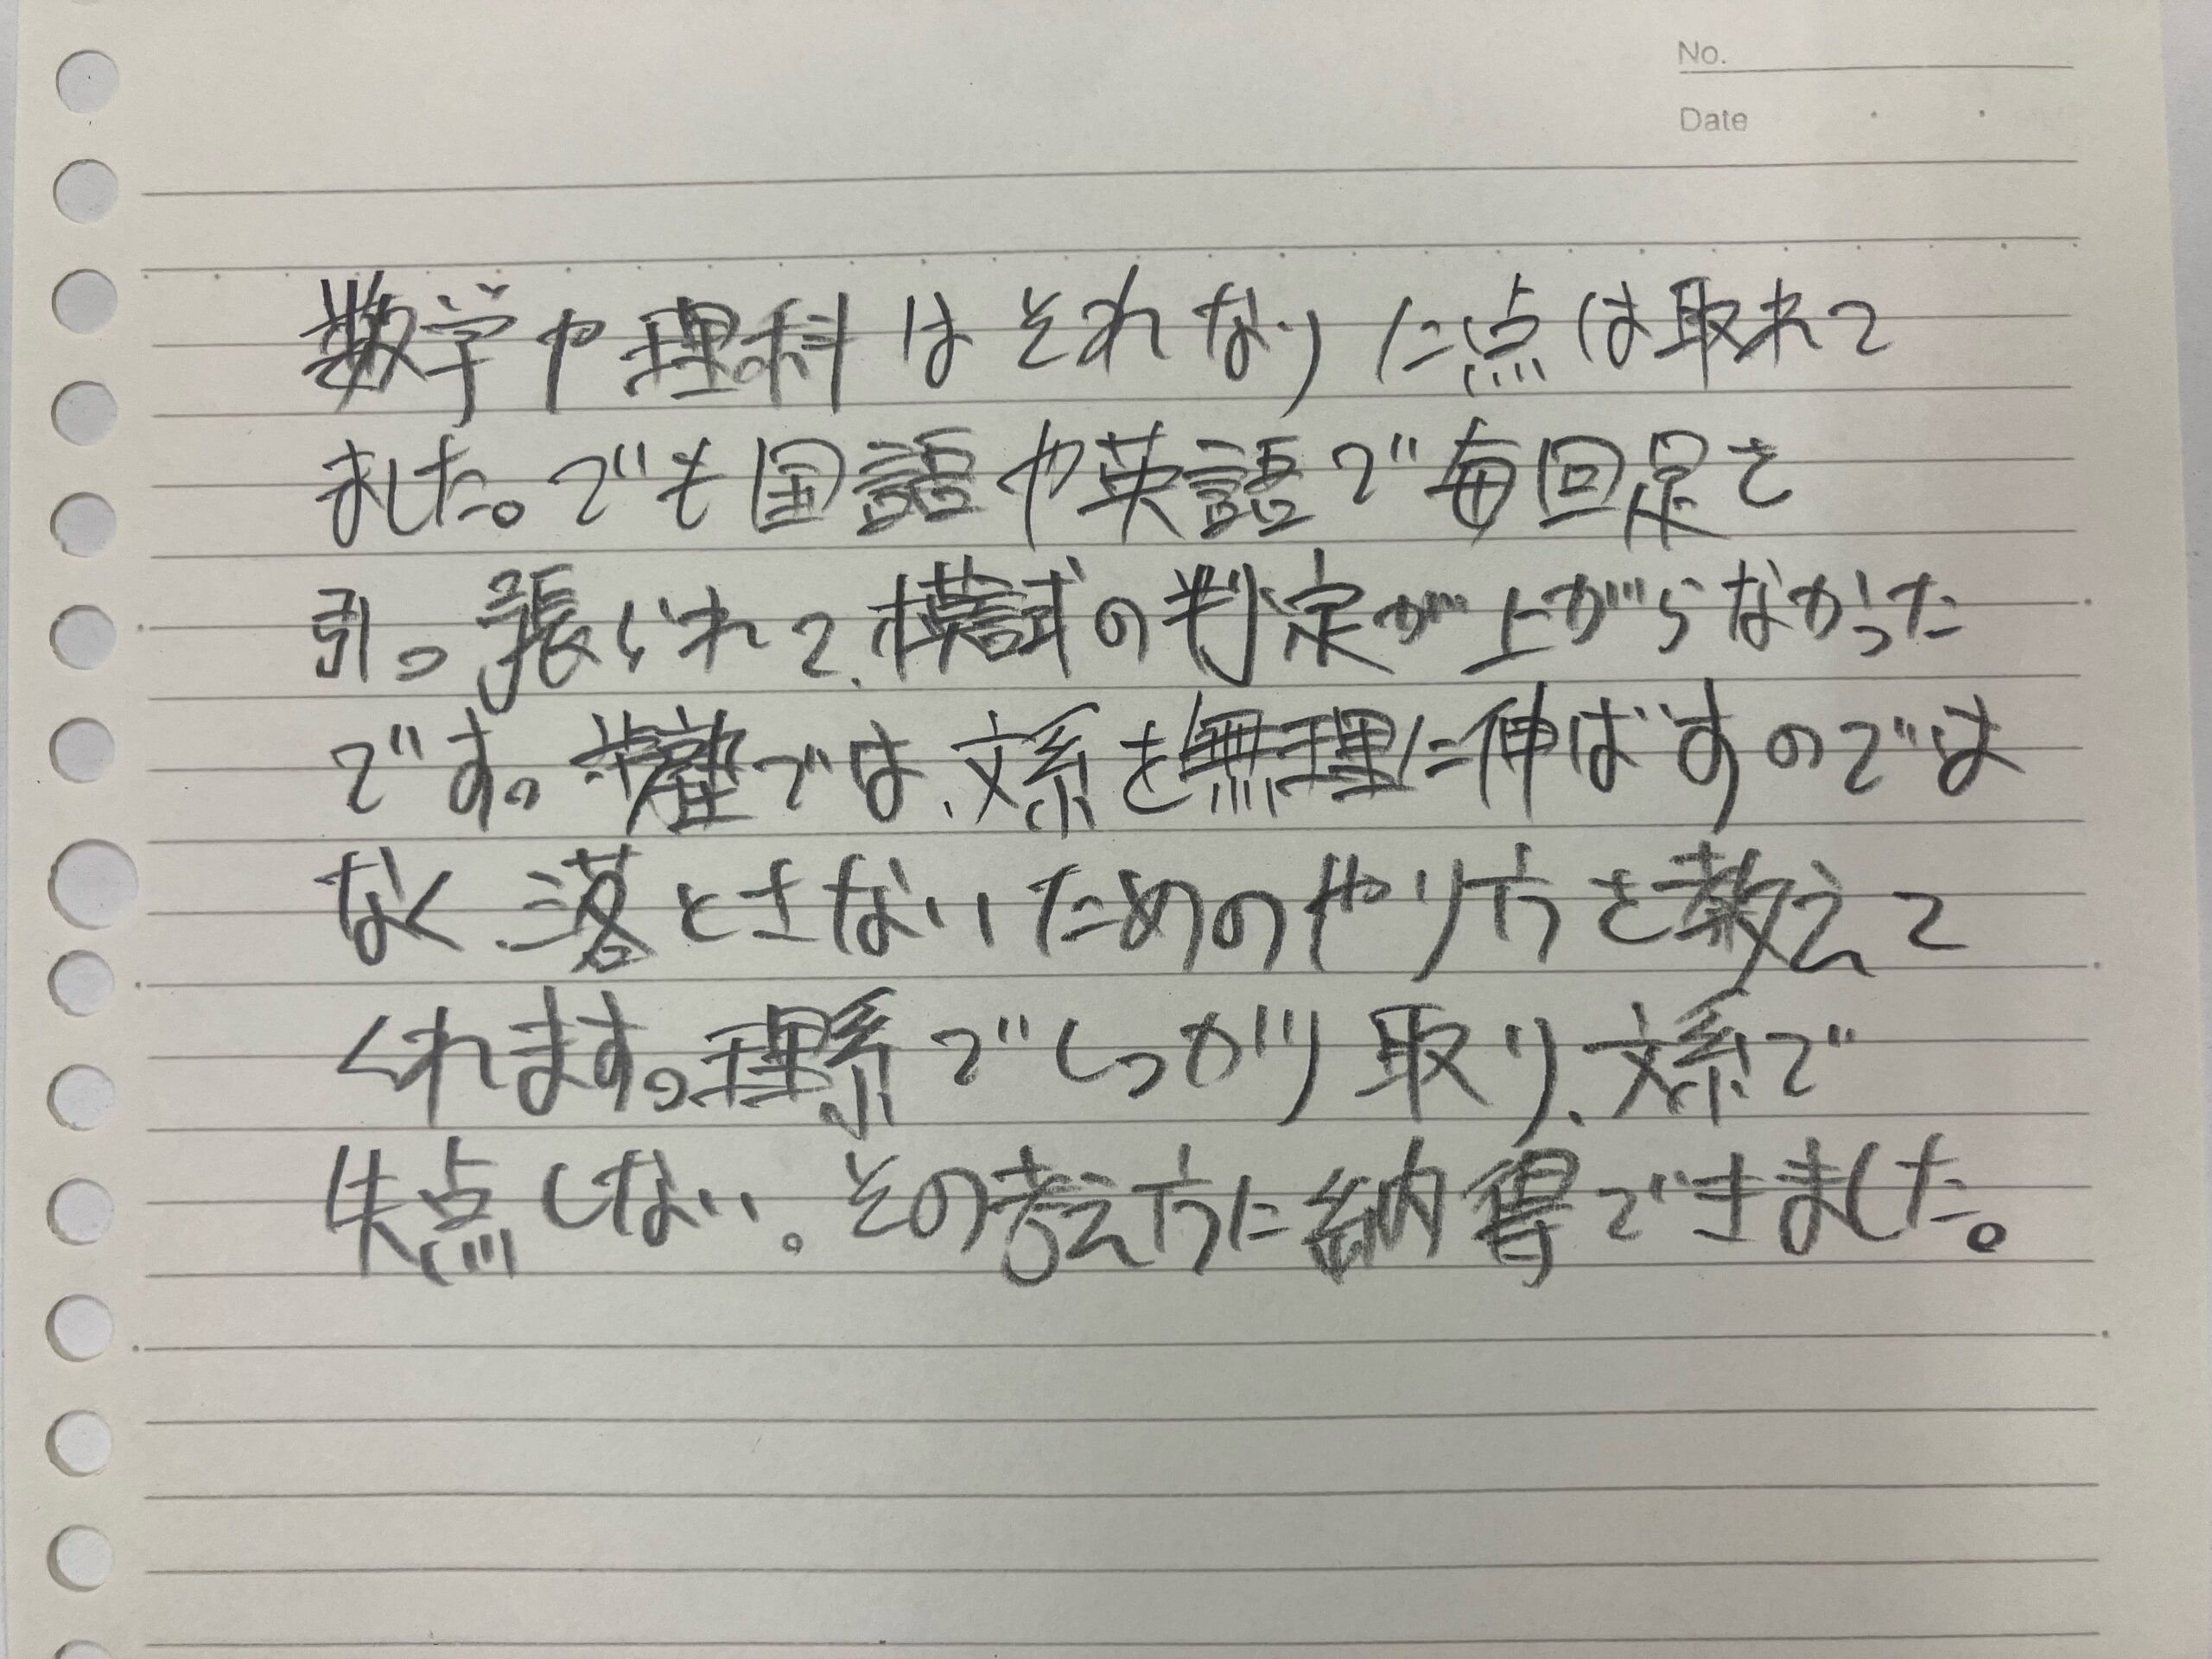 No.
Date
数学や理科はそれなりに点は取れて
ました。でも国語や英語で毎回足を
引っ張られて、模試の判定が上がらなかった
です。栄塾では、文系を無理に伸ばすのでは
なく、落とさないためのやり方を教えて
くれます。理系でしっかり取り、文系で
失点しない。その考え方に納得できました。